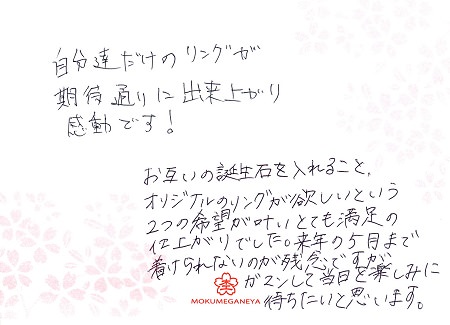 自分達だけのリングが
期待通りに出来上がり
感動です!
お互いの誕生石を入れること、
オリジナルのリングが欲しいという
2つの希望が叶いとても満足の
仕上がりでした。来年の5月まで
着けられないのが残念ですが
ガマンして当日を楽しみに
待ちたいと思います。
MOKUMEGANEYA